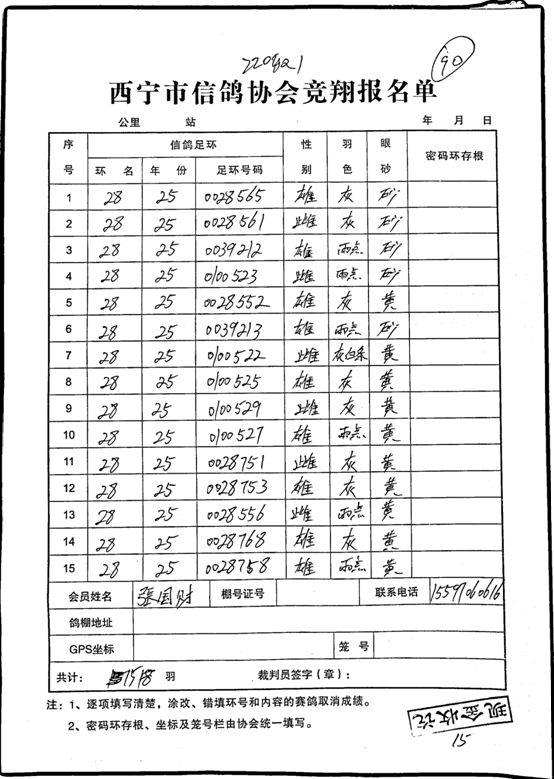 220421
90
西宁市信鸽协会竞翔报名单
公里 站 年 月 日
序号 信鸽足环 性别 羽色 眼砂 密码环存根
环名 年份 足环号码
1 28 25 0028565 雄 灰 砂
2 28 25 0028561 雌 灰 砂
3 28 25 0039212 雄 雨点 砂
4 28 25 0100523 雌 雨点 砂
5 28 25 0028552 雄 灰 黄
6 28 25 0039213 雄 雨点 砂
7 28 25 0100522 雌 灰白条 黄
8 28 25 0100525 雄 灰 黄
9 28 25 0100529 雌 灰 黄
10 28 25 0100527 雄 雨点 黄
11 28 25 0028751 雌 灰 黄
12 28 25 0028753 雄 灰 黄
13 28 25 0028556 雌 雨点 黄
14 28 25 0028768 雄 灰 黄
15 28 25 0028758 雄 雨点 黄
会员姓名 张国财 棚号证号 联系电话 15597060616
鸽棚地址
GPS坐标 笼号
共计： 羽 裁判员签字（章）：
注：1、逐项填写清楚，涂改、错填环号和内容的赛鸽取消成绩。
2、密码环存根、坐标及笼号栏由协会统一填写。
现金收讫
15